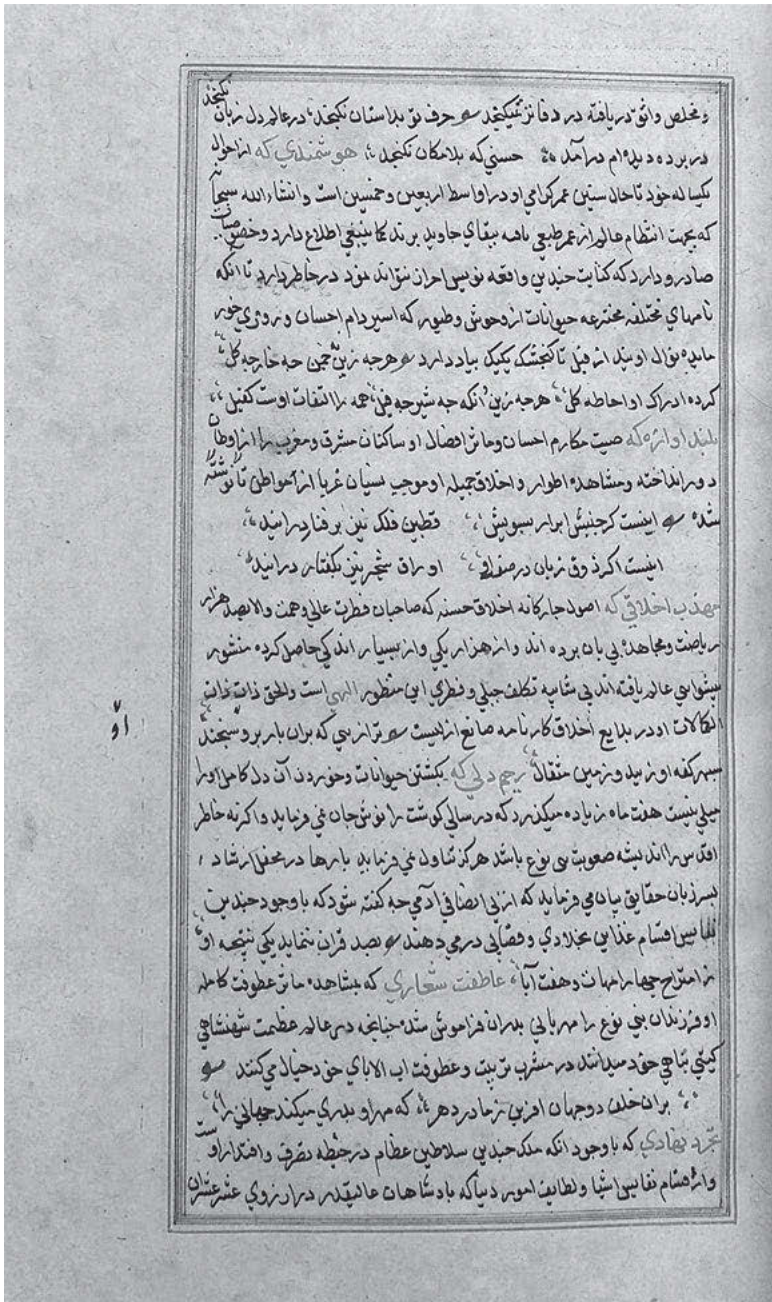 و مخلص واثق دریافته در دفاتر نمیکنجد حرف تو بداستان نکنجد در عالم دل زبان نکنجد
در پرده دیده ام درآمد حسنی که بلامکان نکنجد هوشمندی که از احوال
یکساله خود تا حال سنین عمر کرامی او در اواسط اربعین و خمسین است و انشاء الله سبحانه
که بجهت انتظام عالم از عمر طبیعی ببقای جاوید برند کما ینبغی اطلاع دارد و خصوصیات
صادر و وارد که کتابت چندین واقعه نویس احراز نتواند نمود در خاطر دارد تا آنکه
نامهای مختلفه مخترعه حیوانات از وحوش و طیور که اسیر دام احسان و روزی خور
مایده نوال اویند از فیل تا کنجشک یکیک بیاد دارد هرچه زین چمن چه خار چه کل
کرده ادراک او احاطه کل هرچه زین آنکه چه شیر چه فیل همه را التفات اوست کفیل
بلند اوازه که صیت مکارم احسان و ماثر افضال او ساکنان مشرق و مغرب را از اوطان
دور انداخته و مشاهده اطوار و اخلاق جمیله او موجب نسیان غربا از آن مواطن
شده اینست کر جنبش ابرار بسویش قطبین فلک نیز برفتار درآیند
اینست اکر ذوق زبان در صفت او اوراق شجر نیز بکفتار درآیند
مهذب اخلاقی که اصول چارکانه اخلاق حسنه که صاحبان فطرت عالی و همت والا بصد هزار
ریاضت و مجاهده پی بآن برده اند و از هزار یکی و از بسیار اندکی حاصل کرده منشور
پیشوایی عالم یافته اند بی شایبه تکلف جبلی و فطری این منظور الهی است و الحق ذات
الکمالات او در بدایع اخلاق کارنامه صانع ازلیست ترازویی که بران بار برو سنجند
سپهر کفه او زیبد و زمین مثقال رحم دلی که بکشتن حیوانات و خوردن آن دل کامل او را
میلی نیست هفت ماه زیاده میکذرد که در سالی کوشت را نوش جان نمی فرماید و اکر نه خاطر
اقدس را اندیشه صعوبت بنی نوع باشد هرکز تناول نمی فرماید بارها در محفل ارشاد
بسر زبان حقایق بیان می فرماید که از بی انصافی آدمی چه کفته شود که با وجود چندین
نفایس اقسام غذا بجلادی و قصابی در می دهند بصد قران ننماید یکی نتیجه او
ز امتزاج چهار امهات و هفت آبا عاطفت شعاری که بمشاهده ماثر عطوفت کامله
او فرزندان بنی نوع را مهربانی پدران فراموش شده چنانچه در عالم عظمت شهنشاهی
کیتی پناهی خود میدانند در مشرب تربیت و عطوفت اب الابای خود خیال می کنند
بران خلف دو جهان افرین ز مادر دهر که مهر او پدری میکند جهانی را
تجرد نهادی که با وجود آنکه ملک چندین سلاطین عظام در حیطه تصرف و اقتدار اوست
و از اقسام نفایس اشیا و لطایف امور دنیا که بادشاهان عالیقدر در ارزوی عشر عشیر آن
او